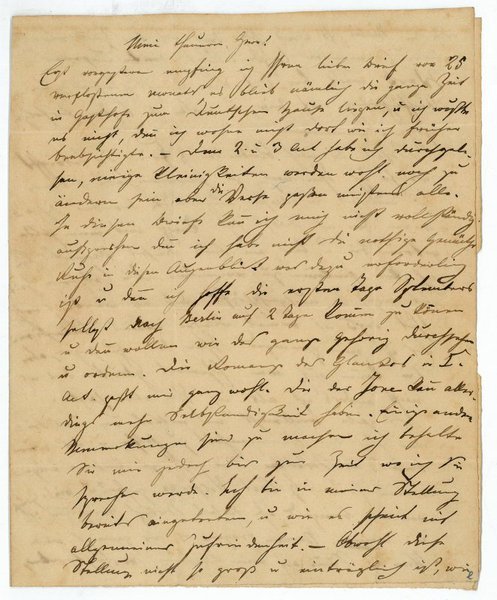 Mein theurer Herr!
Erst vorgestern empfing ich Ihren lieben Brief vom 25
verflossenen Monats es blieb nämlich die ganze Zeit
im Gasthofe zum Deutschen Hause liegen, u ich wußte
es nicht denn ich wohne nicht dort wie ich früher
beabsichtigte. – Den 2. u 3 Act habe ich durchgele-
sen, einige Kleinigkeiten werden wohl noch zu
ändern sein aber die Verse passen meistens alle.
In diesem Briefe kan ich mich nicht vollständig
aussprechen den ich habe nicht die nöthige Gemüths
Ruhe in diesem Augenblick was dazu erforderlich
ist u den ich hoffe die ersten Tage Septembers
selbst nach Berlin auf 2 Tage komen zu könen
u dan wollen wir das ganze gehörig durchsehen
u ordnen. Die Romanze des Glaukos im I.
Act. paßt mir ganz wohl. Die der Jone kan aller-
dings mehr Selbständigkeit haben. Einige andere
Bemerkungen sind zu machen ich behalte
Sie mir jedoch bis zur Zeit wo ich Sie
sprechen werde. Ich bin in meiner Stellung
bereits eingetreten, u wie es scheint mit
allgemeiner Zufriedenheit. – Obwohl diese
Stellung nicht so groß u einträglich ist, wie